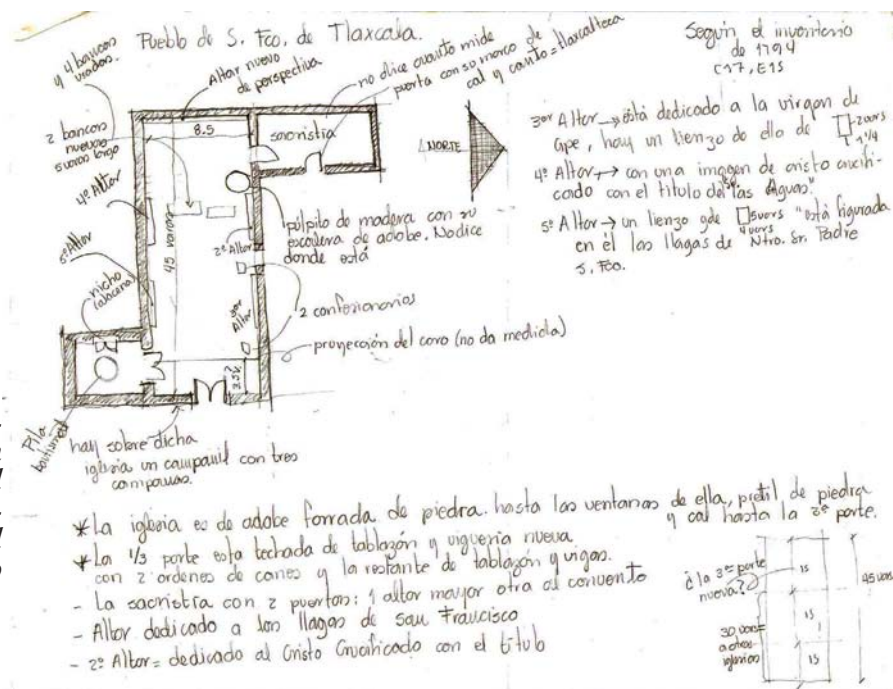 Pueblo de S. Fco. de Tlaxcala.
Según el inventario
de 1794
C17, E15
y 4 bancos
usados.
2 bancos
nuevos
5 varas largo
Altar nuevo
de perspectiva
no dice cuanto mide
puerta con su marco de
cal y canto = tlaxcalteca
8.5
sacristía
NORTE
4º Altar
5º Altar
45 varas
2º Altar
3er
Altar
púlpito de madera con su
escalera de adobe. No dice
donde está
nicho
(alacena)
2 confesionarios
proyección del coro (no da medida)
3.5v.
?
Pila
bautismal
hay sobre dicha
iglesia un campanil con tres
campanas.
3er Altar → está dedicado a la virgen de
Gpe, hay un lienzo de ella de 2 vars
1 1/4
4º Altar → con una imagen de cristo crucifi-
cado con el título de "las Aguas"
5º Altar → un lienzo gde 5 vars "está figurada
4 vars
en él las llagas de Ntro. Sr. Padre
S. Fco.
* La iglesia es de adobe forrada de piedra hasta las ventanas de ella, pretil de piedra
y cal hasta la 3ª parte.
* La 1/3 parte esta techada de tablazón y viguería nueva
con 2 ordenes de canes y la restante de tablazón y vigas.
- La sacristia con 2 puertas: 1 altar mayor otra al convento
- Altar dedicado a las llagas de san Francisco
- 2º Altar = dedicado al Cristo Crucificado con el título
¿la 3ª parte
nueva?
15
15
15
45 vars
30 vars =
a otras
iglesias